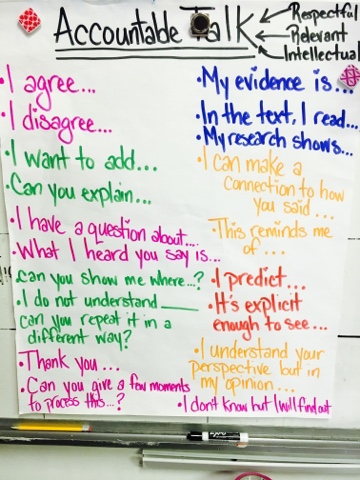 Accountable Talk
Respectful
Relevant
Intellectual
• I agree...
• I disagree...
• I want to add...
• Can you explain...
• I have a question about....
• What I heard you say is...
• Can you show me where...?
• I do not understand ____
can you repeat it in a
different way?
• Thank you...
• Can you give a few moments
to process this...?
• My evidence is...
• In the text, I read...
• My research shows...
• I can make a
connection to how
you said...
• This reminds me
of...
• I predict...
• It's explicit
enough to see...
• I understand your
perspective but in
my opinion...
• I don't know but I will find out
EXPO